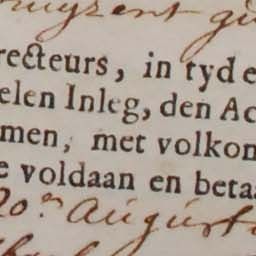 recteurs, in tyde
elen Inleg, den Ac
men, met volkon
e voldaan en beta
20.en Augusta